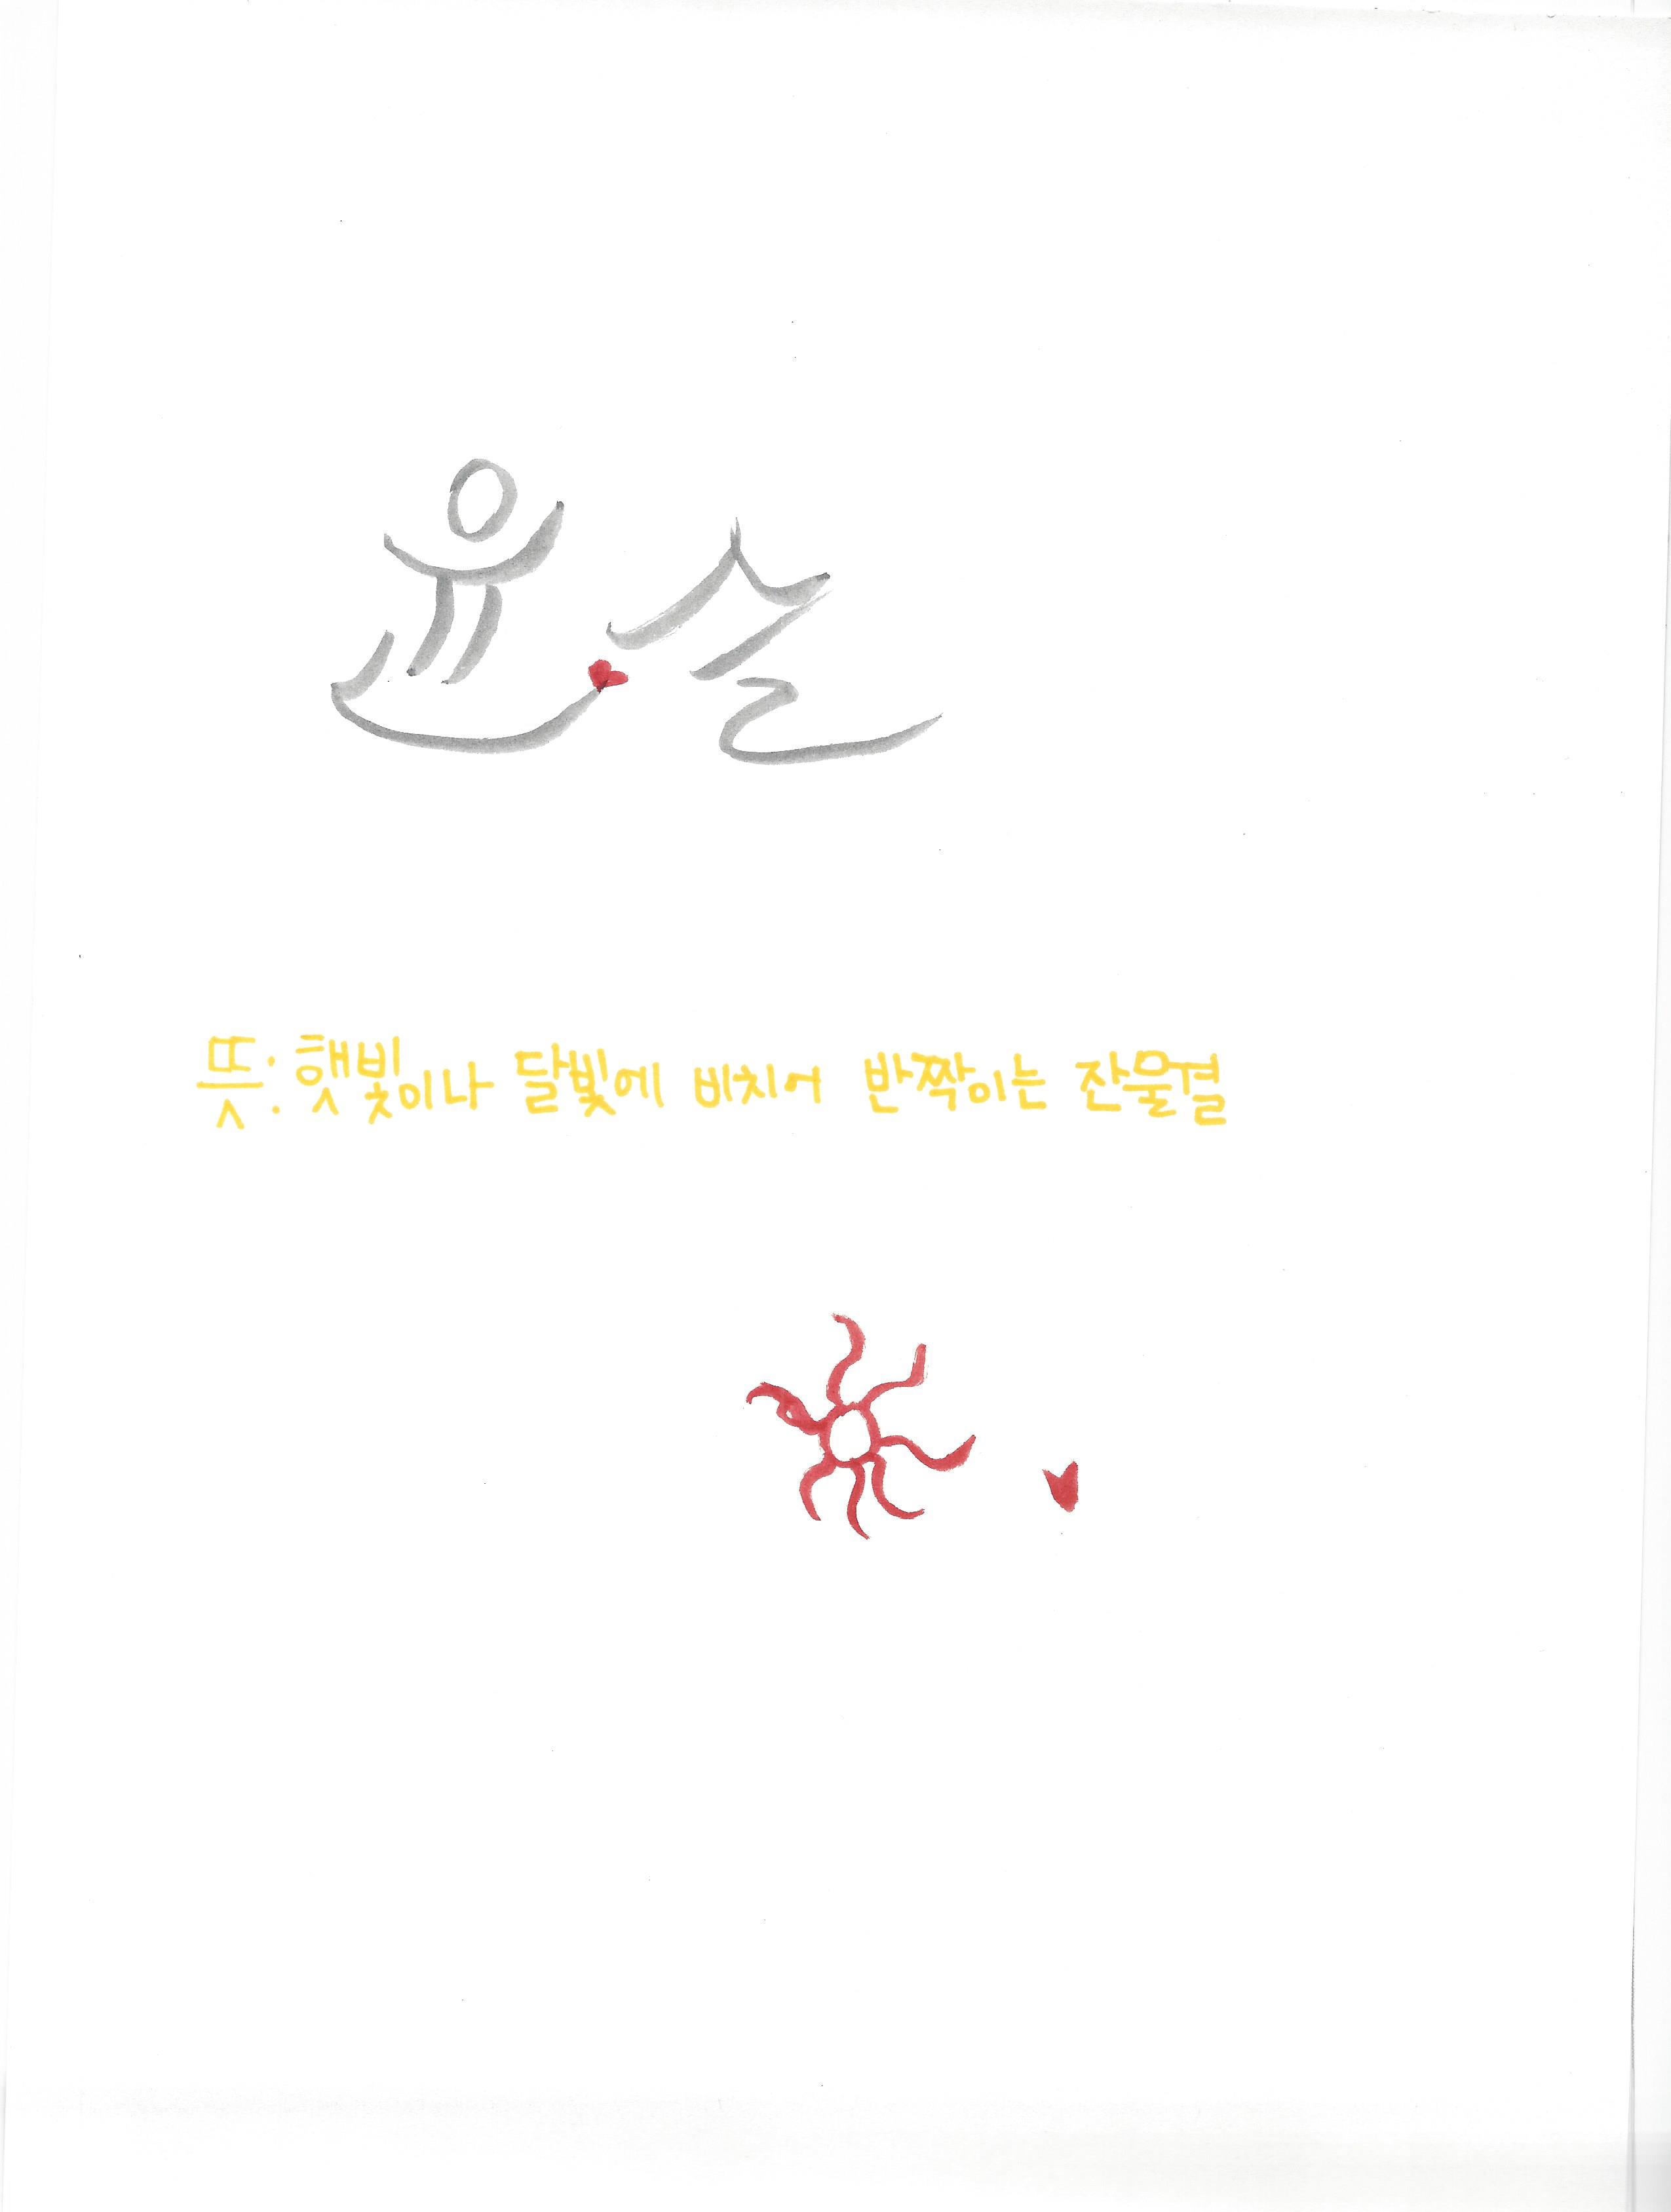 윤슬
뜻: 햇빛이나 달빛에 비치어 반짝이는 잔물결